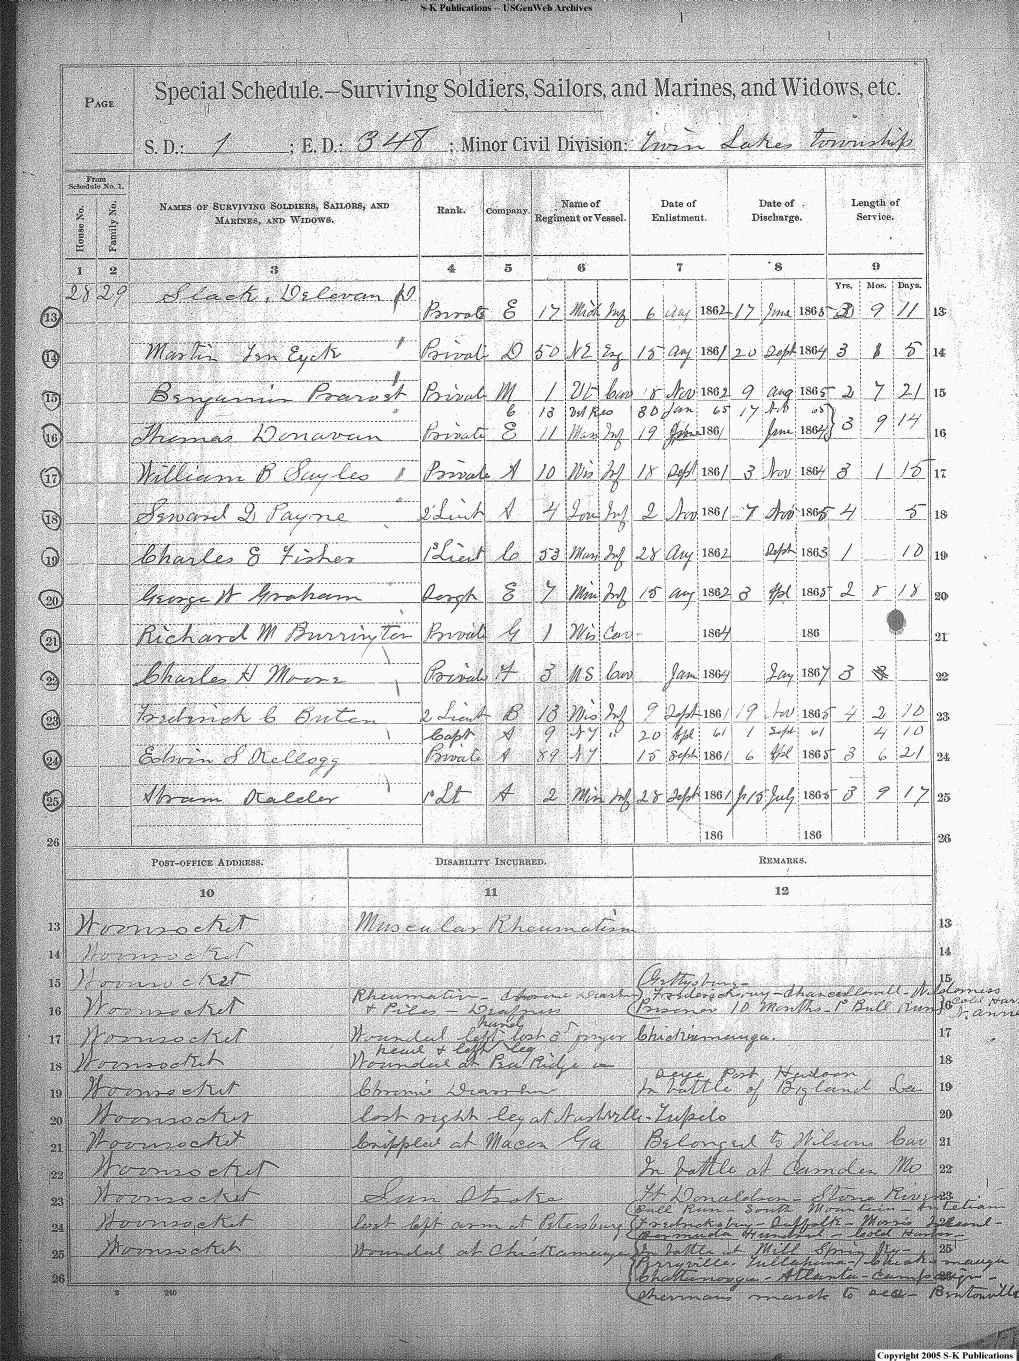 S-K Publications – USGenWeb Archives
PAGE
Special Schedule.—Surviving Soldiers, Sailors, and Marines, and Widows, etc.
S. D.: 1 ; E. D.: 348 ; Minor Civil Division: Twin Lakes township
From Schedule No. 1.
House No. Family No. NAMES OF SURVIVING SOLDIERS, SAILORS, AND MARINES, AND WIDOWS. Rank. Company. Name of Regiment or Vessel. Date of Enlistment. Date of Discharge. Length of Service.
1 2 3 4 5 6 7 8 9
Yrs. Mos. Days.
28 29 Slack, Delevan D
13 Private E 17 Mich Inf 6 Aug 1862 17 June 1865 9 11 13
14 Martin Private D 50 NE Eng 15 Aug 1861 20 Sept 1864 3 1 5 14
15 Benjamin Private M 1 Vt Cav 18 Nov 1862 9 Aug 1865 2 7 21 15
6 13 Vet Res 30 Jan 65 17 Nov 65
16 Thomas Donavan Private E 11 Mas Inf 19 June 1861 June 1864 3 9 14 16
17 William B Sayles Private A 10 Wis Inf 18 Sept 1861 3 Nov 1864 3 1 15 17
18 Seward D Payne 2 Lieut A 4 Iow Inf 2 Nov 1861 7 Nov 1865 4 5 18
19 Charles E Fisher 1 Lieut C 53 Mas Inf 28 Aug 1862 Sept 1863 1 10 19
20 George W Graham Sergt E 7 Min Inf 15 Aug 1862 3 Apl 1865 2 8 18 20
21 Richard M Burrington Private G 1 Wis Cav 1864 186 21
22 Charles H Moore Private F 3 US Cav Jan 1864 Jay 1867 3 22
23 Frederick C Buten 2 Lieut B 13 Wis Inf 9 Sept 1861 19 Nov 1865 4 2 10 23
Capt A 9 NY " 20 Apl 61 1 Sept 61 4 10
24 Edwin S Kellogg Private A 89 NY 15 Sept 1861 6 Apl 1865 3 6 21 24
25 Hiram Kalder 1 Lt A 2 Min Inf 28 Sept 1861 15 July 1865 3 9 17 25
26 186 186 26
POST-OFFICE ADDRESS. DISABILITY INCURRED. REMARKS.
10 11 12
13 Woonsocket Muscular Rheumatism 13
14 Woonsocket 14
15 Woonsocket Gettysburg 15
Rheumatism - Chronic Diarrh Fredericksburg - Chancellorvill - Wilderness
16 Woonsocket + Piles - Deafness Prisoner 10 Months - 1 Bull Run Cold Har 16
hand
17 Woonsocket Wounded left lost 3 finger Chickamauga. 17
head + left leg
18 Woonsocket Wounded at Pea Ridge in 18
seige Port Hudson
19 Woonsocket Chronic Diarrhea In battle of Bigland La 19
20 Woonsocket lost right leg at Nashville - Tupelo 20
21 Woonsocket Crippled at Macon Ga Belonged to Wilsons Cav 21
22 Woonsocket In battle at Camden Mo 22
23 Woonsocket Sun Stroke Ft Donaldson - Stone River 23
Bull Run - South Mountain - Antetiam
24 Woonsocket lost left arm at Petersburg Fredricksburg - Suffolk - Morris Island - 24
Bermuda Hundred - Cold Harbor -
25 Woonsocket Wounded at Chickamauga In battle at Mill Spring Ky - 25
Perryville - Tullahoma - Chickamauga
26 Chattanooga - Atlanta - campaign - 26
Shermans march to sea - Bentonville
240
Copyright 2005 S-K Publications